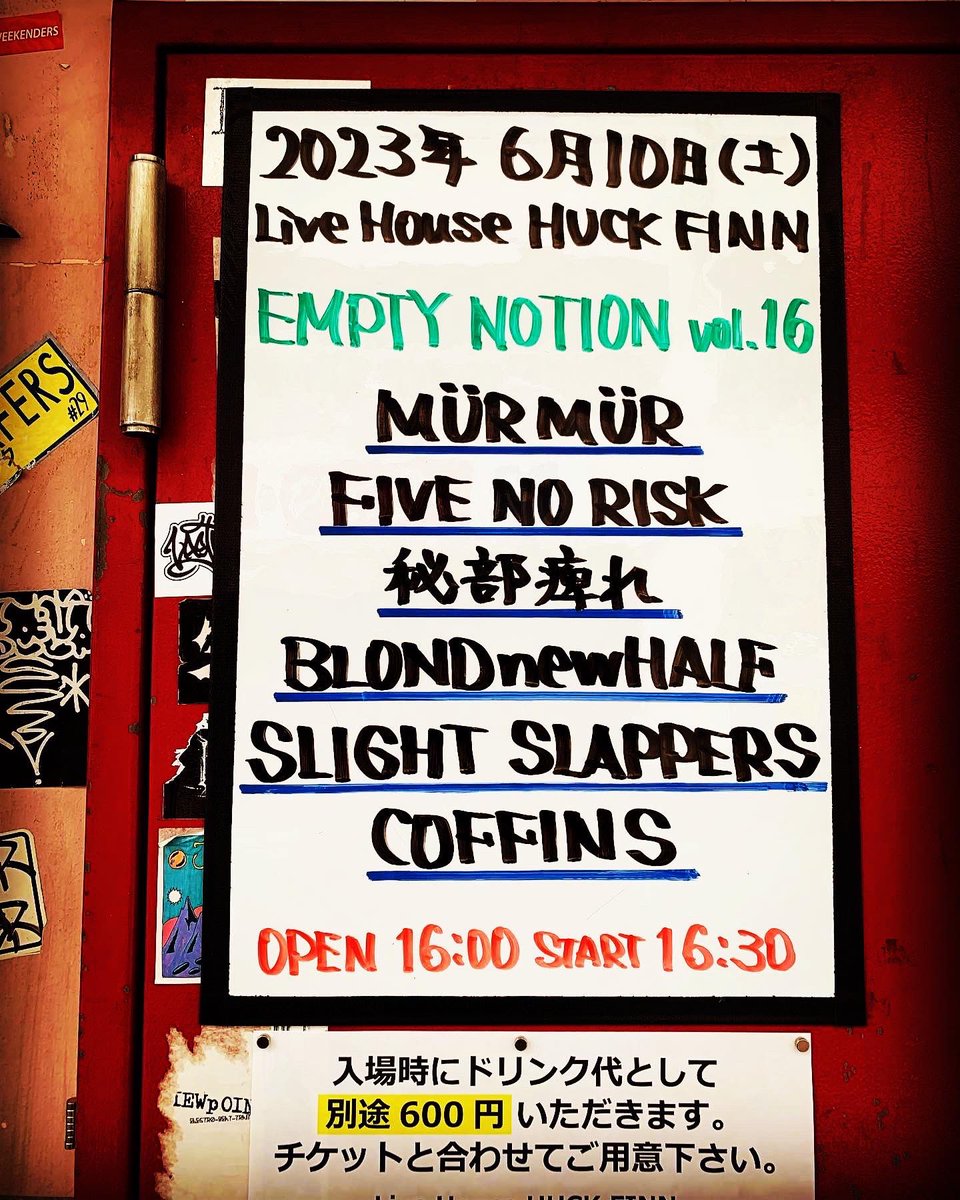 WEEKENDERS
2023年 6月10日(土)
Live House HUCK FINN
EMPTY NOTION vol.16
MÜR MÜR
FIVE NO RISK
秘部痺れ
BLONDnewHALF
SLIGHT SLAPPERS
COFFINS
OPEN 16:00 START 16:30
FERS
#29
入場時にドリンク代として
別途 600 円 いただきます。
チケットと合わせてご用意下さい。
Live House HUCK FINN